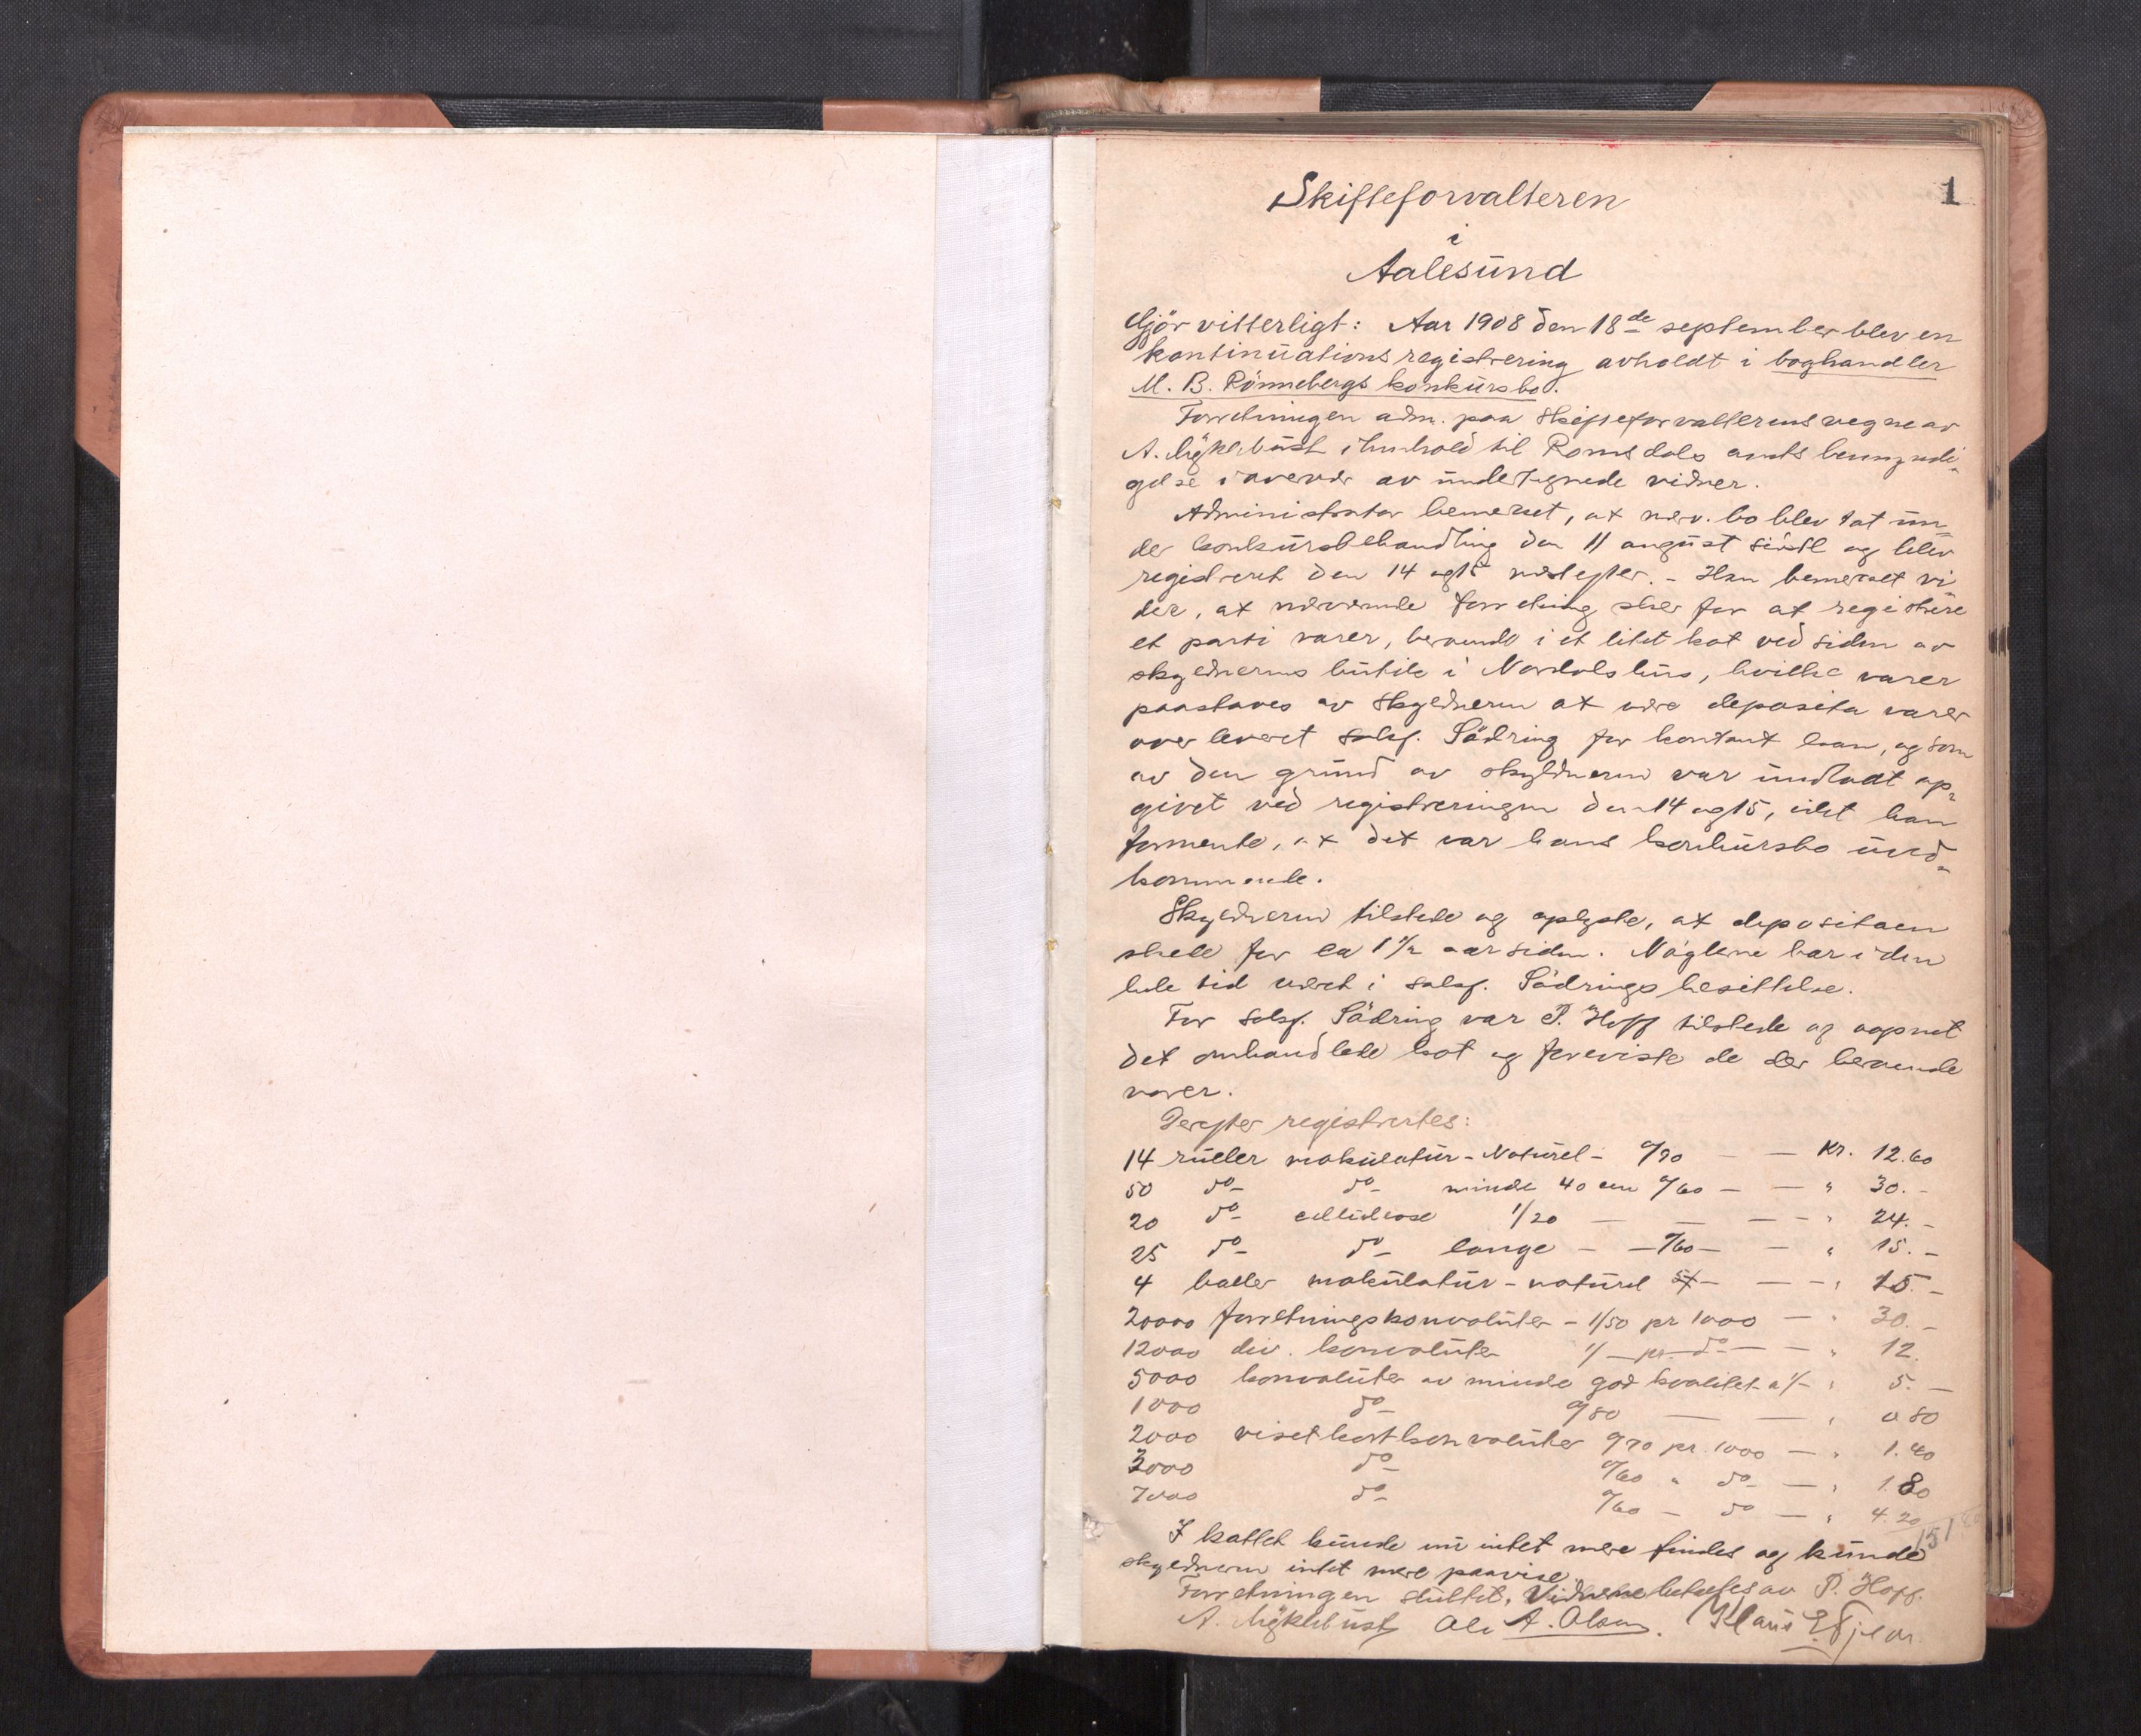 1
Skifteforvalteren
i
Aalesund
Gjör vitterligt: Aar 1908 den 18de september blev en
kontinuationsregistrering avholdt i boghandler
M. B. Rönnebergs konkursbo.
Forretningen adm. paa skifteforvalterens vegne av
A. Myklebust i henhold til Romsdals amts bemyndi-
gelse i overvær av undertegnede vidner.
Administrator bemerket, at nærv. bo blev tat un-
der konkursbehandling den 11 august sidstl og blev
registreret den 14 og 15 næstefter. - Han bemerket vi
der, at nærværende forretning sker for at registrere
et parti varer, beroende i et litet kot ved siden av
skyldnerens butik i Nordals hus, hvilke varer
paastaaes av skyldneren at være deposita varer
overleveret sakf. Södring for kontant laan, og som
av den grund av skyldneren var undladt op-
givet ved registreringen den 14 og 15, idet han
formente, at det var hans konkursbo uved-
kommende.
Skyldneren tilstede og oplyste, at depositaen
skede for ca 1 1/2 aar siden. Nöglene har i den
hele tid været i sakf. Södrings besittelse.
For sakf. Södring var P. Hoff tilstede og aapnet
det omhandlede kot og foreviste de der beroende
varer.
Derefter registrertes:
14 ruller makulatur - Naturel - 0/90 — — Kr. 12.60
50 do - do - minde 40 cm 0/60 — — " 30. -
20 do - cellulose 1/20 — — — " 24. -
25 do - do - lange - 0/60 — — " 15. -
4 baller makulatur - naturel — — " 15. -
20000 forretningskonvoluter - 1/50 pr 1000 — " 30. -
12000 div. konvoluter 1/- pr. do — — " 12.
5000 konvoluter av mindre god kvalitet a 1/- " 5. -
1000 do - 0/80 — — " 0.80
2000 visetkortkonvoluter 0/70 pr. 1000 — " 1.40
3000 do - 0/60 " do — " 1.80
7000 do - 0/60 - do — " 4.20
151
I kottet kunde nu intet mere findes og kunde
skyldneren intet mere paavise.
Forretningen sluttet. Vidnene betales av P. Hoff.
A. Myklebust Ole A. Olsen. Klaus E.